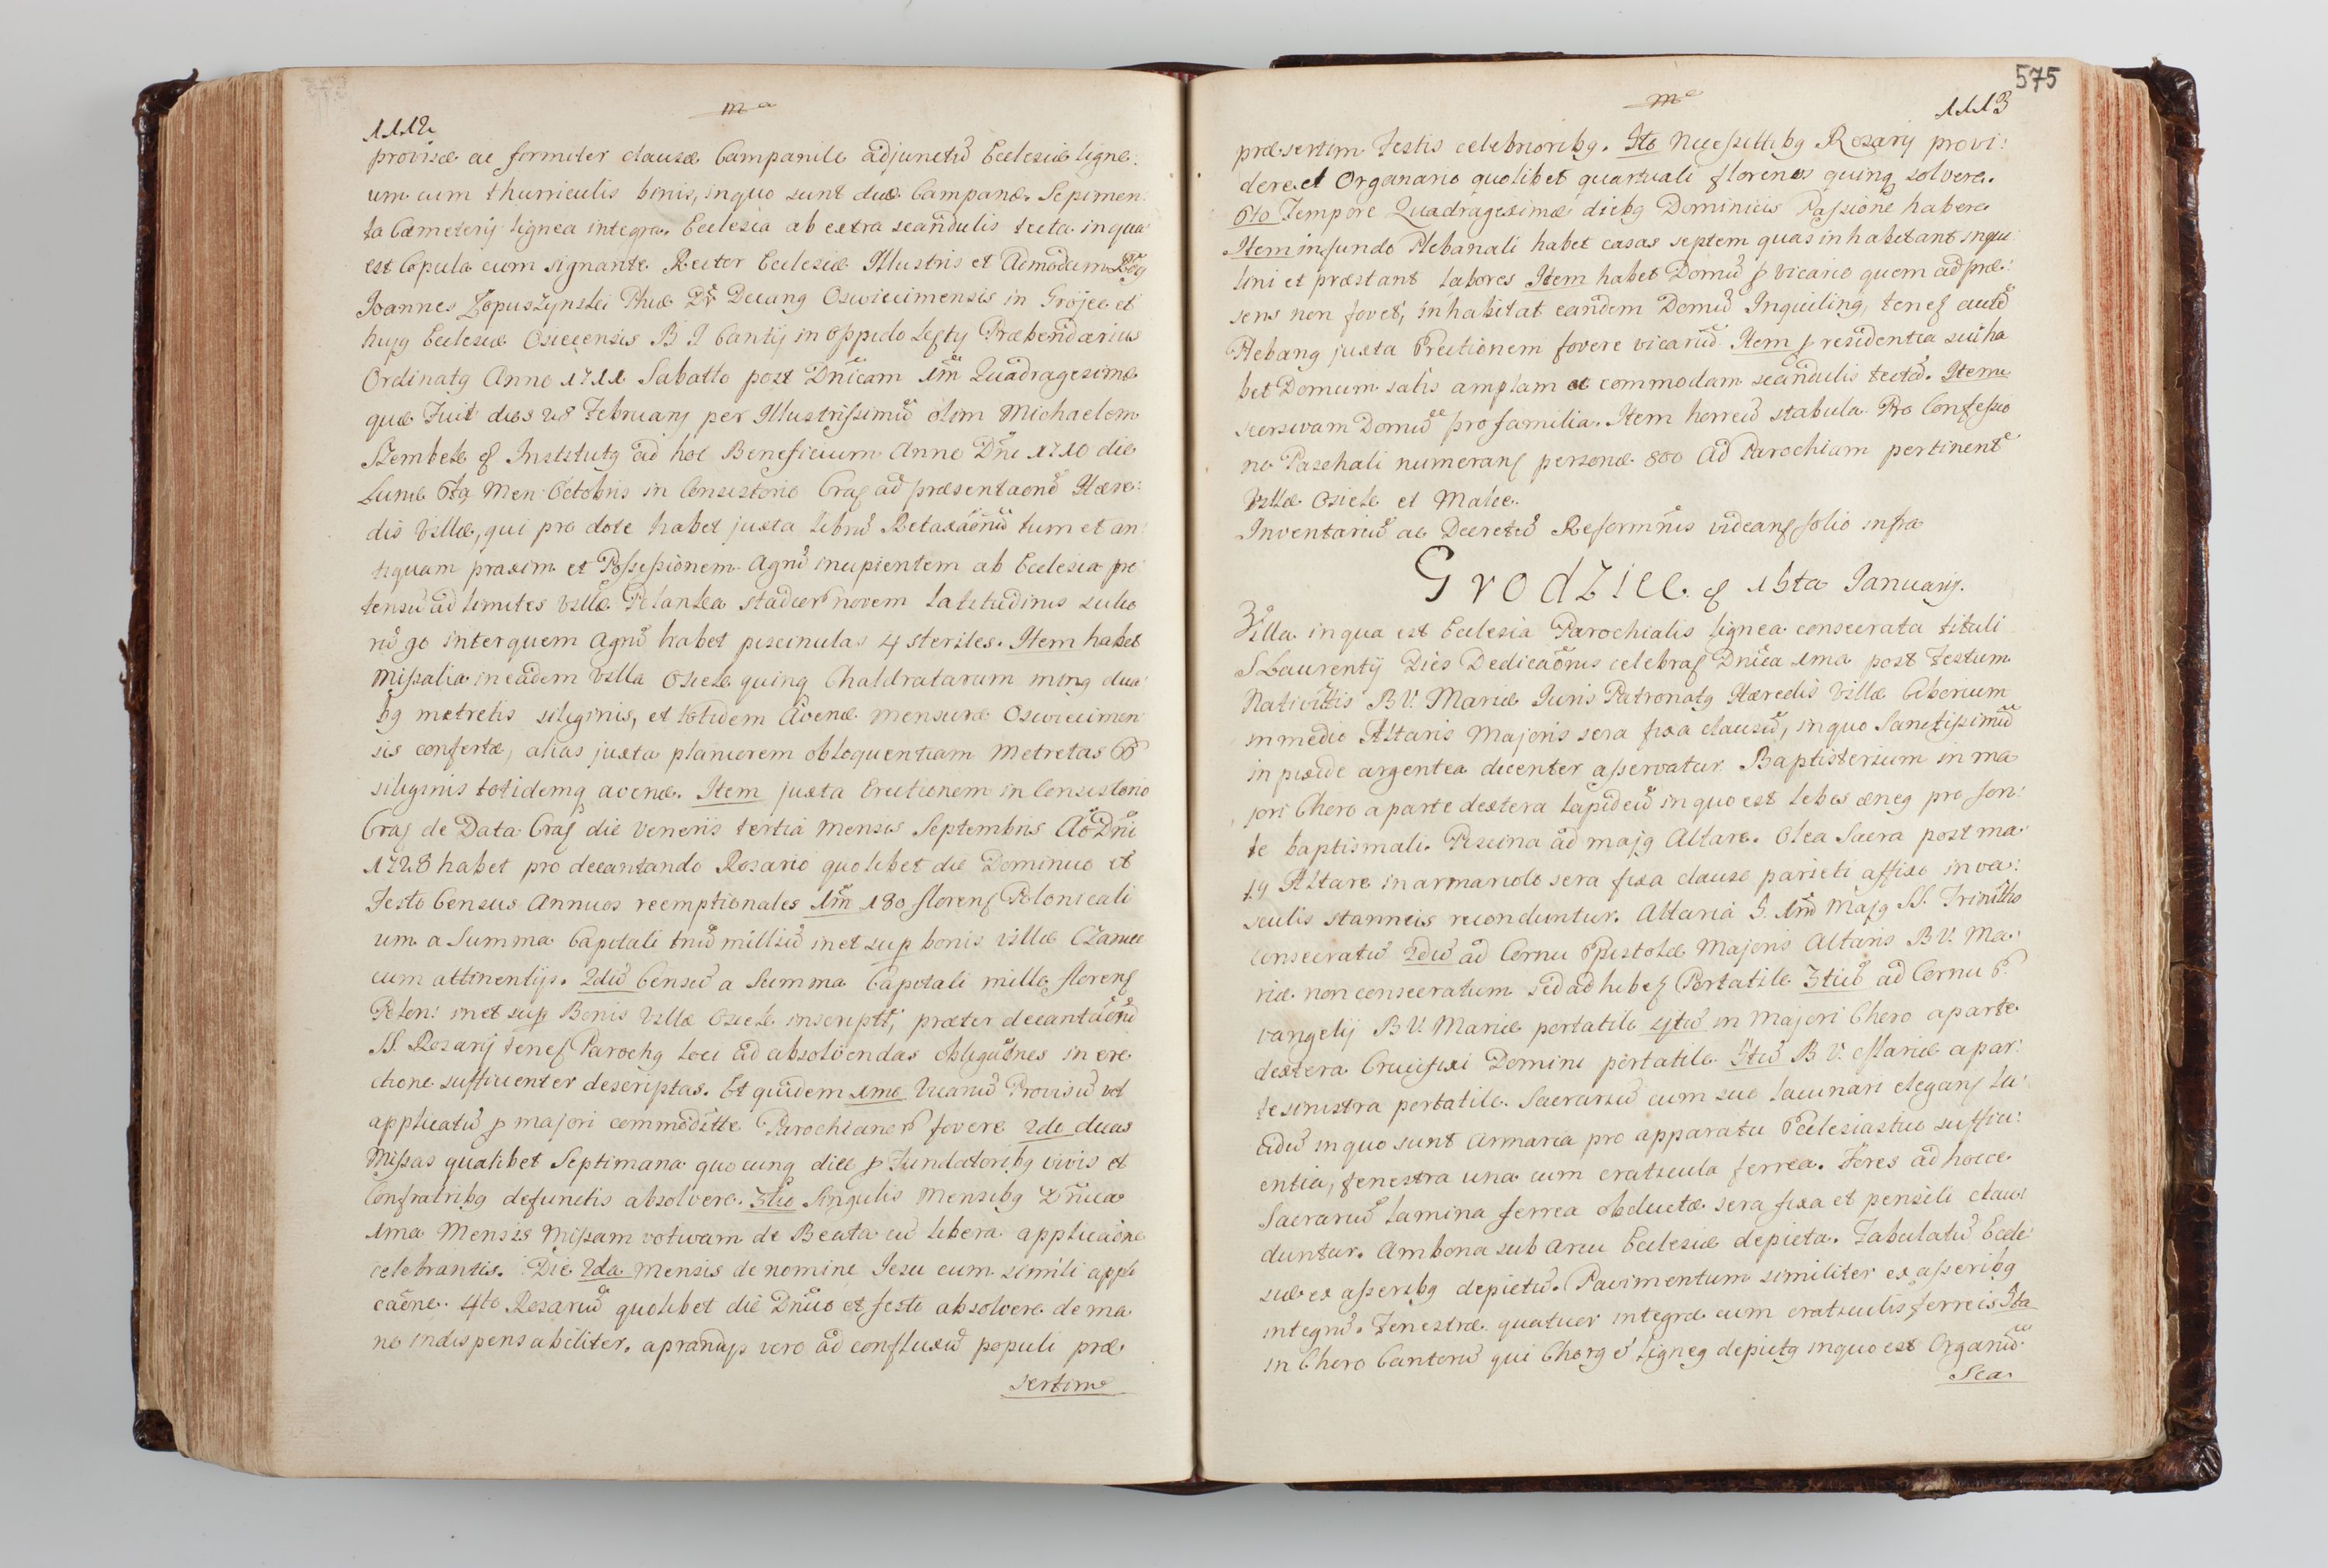 1112
provisæ ac formiter clausæ Campanile adjunctũ Ecclesiæ ligne:
um cum thurriculis binis, in quo sunt duæ Campanæ. Sepimen:
ta Cæmeterij lignea integra. Ecclesia ab extra scandulis tecta in qua
est Copula cum signante Rector Ecclesiæ Illustris et Admodum
Joannes Łopuszynski Decang Oswiecimensis in Grojec et
hujg Ecclesiæ Osiecensis B J Cantij in oppido Præbendarius
Ordinatg Anno 1711 Sabatto post Dnicam 1m Quadragesimæ
quæ Fuit dies 28 Februarij per Illustrissimũ olim Michaelem
Szembek Institutg ad hoc Beneficium Anno Dni 1710 die
Lunæ 6ta Men: Octobris in Consistorio Crac ad præsentaonẽ Hære:
dis Villæ, qui pro dote habet juxta librũ Retaxaonũ tum et an:
tiquam praxim et Possessionem Agrũ incipientem ab Ecclesia pro:
tensũ ad limites Villæ Polanka novem latitudinis sulco
rũ 90 inter quem Agrũ habet piscinulas 4 steriles. Item habet
Missalia in eadem Villa Osiek quinq Chaldratarum ming dua:
bg metretis siliginis, et totidem Avenæ mensuræ Oswiecimen:
sis confertæ, alias juxta planiorem obloquentiam metretas
siliginis totidemq avenæ. Item juxta Erectionem in Consistorio
Crac de Data Crac die Veneris tertia Mensis Septembris Ao Dni
1728 habet pro decantando Rosario quolibet die Dominico et
Festo Census Annuos reemptionales 1m 180 Polonicali
um a Summa Capitali triũ milliũ in et sup bonis Villæ Czaniec
cum attinentijs. 2dũ Censũ a Summa Capitali mille
Polon: in et sup Bonis Villæ Osiek inscript, præter decantaonẽ
SS. Rosarij Parochg loci ad absolvendas obligaones in ere
ctione sufficienter descriptas. Et quidem 1mo Vicariũ Provisũ vel
applicatũ p majori commoditte Parochianor fovere 2do duas
Missas qualibet Septimana quocunq die p Fundatoribg vivis et
Confratribg defunctis absolvere. 3tio Singulis Mensibg Dnica
1ma Mensis Missam votivam de Beata cũ libera applicaone
celebrantis. Die 2da mensis de nomine Jesu cum simili appli
caone. 4to Rosariũ quolibet die Dnico et festo absolvere de ma
ne indispensabiliter, a prandijs vero ad confluxũ populi præ
sertim
575
1113
præsertim Festis celebrioribg. 5to necessittibg Rosarij provi:
dere et Organario quolibet quartuali florenos quinq solvere.
6to Tempore Quadragesimæ diebg Dominicis Passione habere
Item in fundo Plebanali habet casas septem quas inhabitant inqui
lini et præstant labores Item habet Domũ p vicario quem ad præ:
sens non fovet, inhabitat eandem Domũ Inquiling, autẽ
Plebang juxta Erectionem fovere vicariũ. Item p residentia sui ha
bet Domum satis amplam et commodam scandulis tectã. Item
seorsivam Domũ pro familia. Item horreũ stabula. Pro Confessio
ne Paschali numeran personæ 800 Ad Parochiam pertinent
Villæ Osiek et Malec.
Inventariũ ac Decretũ Reformnis videan folio infra
Grodziec. 15ta Januarij.
Villa in qua est Ecclesia Parochialis lignea consecrata tituli
S Laurentij Dies Dedicaonis celebra Dnica 1ma post Festum
Nativittis B V. Mariæ Juris Patronatg Hæredis Villæ Ciborium
in medio Altaris Majoris sera fixa clausũ, in quo Sanctissimũ
in pixide argentea decenter asservatur. Baptisterium in ma
jori Choro a parte dextera lapideũ in quo est lebes æneg pro fon:
te baptismali. Piscina ad majg Altare. Olea Sacra post ma:
jg Altare in armariolo sera fixa clauso parieti affixo in va:
sculis stanneis reconduntur. Altaria 5. 1mũ majg SS. Trinittis
consecratũ 2dũ ad Cornu Epistolæ Majoris Altaris B V. Ma:
riæ non consecratum sed adhibe Portatile 3tiũ ad Cornu E:
vangelij B V. Mariæ portatile 4tũ in Majori Choro a parte
dextera Crucifixi Domini portatile 5tũ B V. Mariæ a par:
te sinistra portatile. Sacrariũ cum suo lacunari elegans lu:
cidũ in quo sunt Armaria pro apparatu Ecclesiastico suffici:
entia, fenestra una cum craticula ferrea. Fores ad hocce
Sacrariũ lamina ferrea obductæ sera fixa et pensili clau:
duntur. Ambona sub arcu Ecclesiæ depicta. Tabulatũ Eccle:
siæ ex asseribg depictũ. Pavimentum similiter ex asseribg
integrũ. Fenestræ quatuor integræ cum craticulis ferreis
in Choro Cantorũ qui Chorg ẽ ligneg depictg in quo est Organũ
Sca: